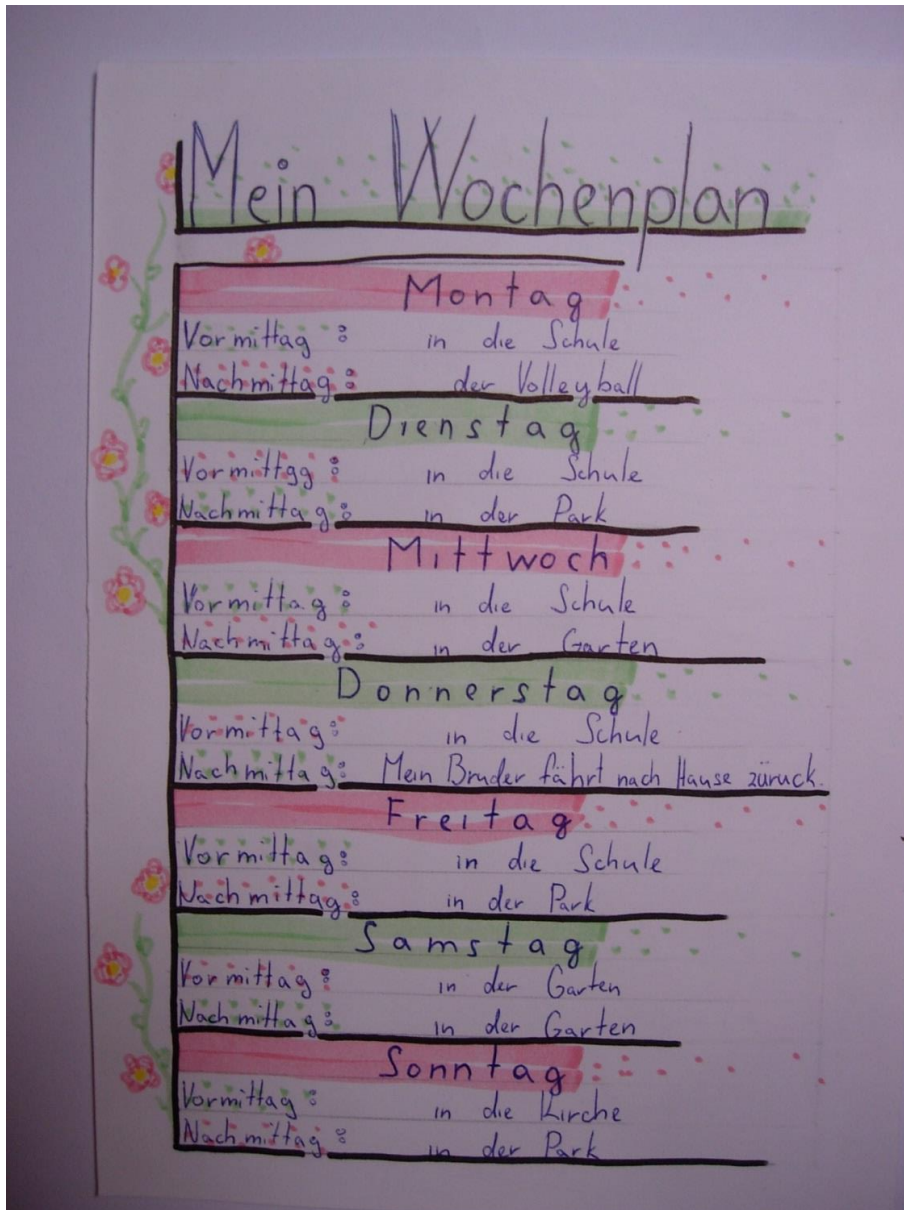 Mein Wochenplan
Montag
Vormittag: in die Schule
Nachmittag: der Volleyball
Dienstag
Vormittgg: in die Schule
Nachmittag: in der Park
Mittwoch
Vormittag: in die Schule
Nachmittag: in der Garten
Donnerstag
Vormittag: in die Schule
Nachmittag: Mein Bruder fährt nach Hause züruck.
Freitag
Vormittag: in die Schule
Nachmittag: in der Park
Samstag
Vormittag: in der Garten
Nachmittag: in der Garten
Sonntag
Vormittag: in die Kirche
Nachmittag: in der Park